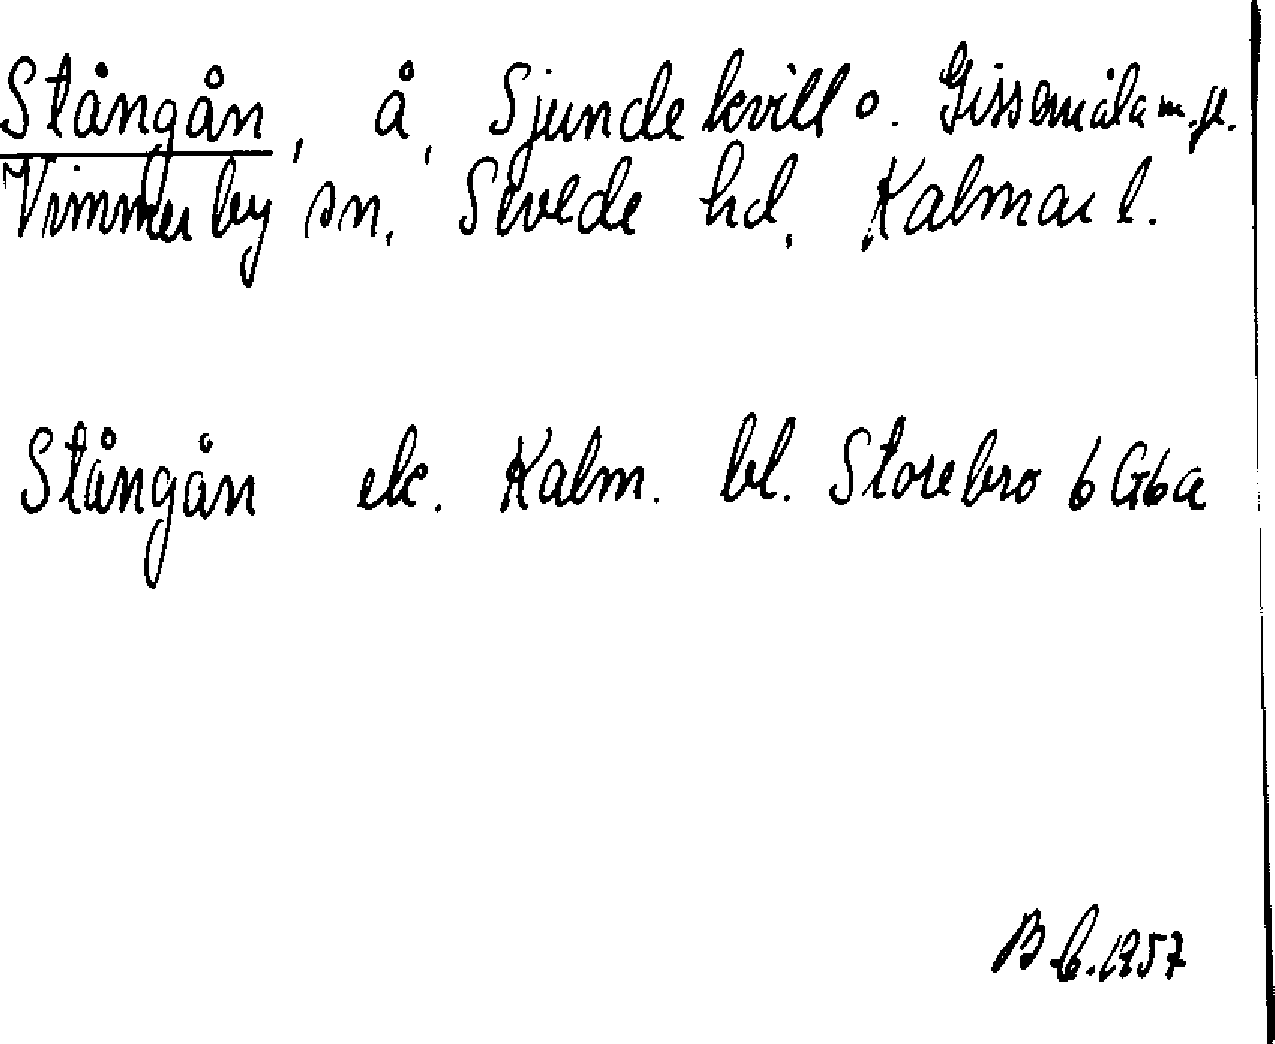 Stångån, å, Sjundekvill o. Gissemåla m.fl.
Vimmerby sn, Sevede hd, Kalmar l.
Stångån ek. Kalm. bl. Storebro 6 G6a
B 1957